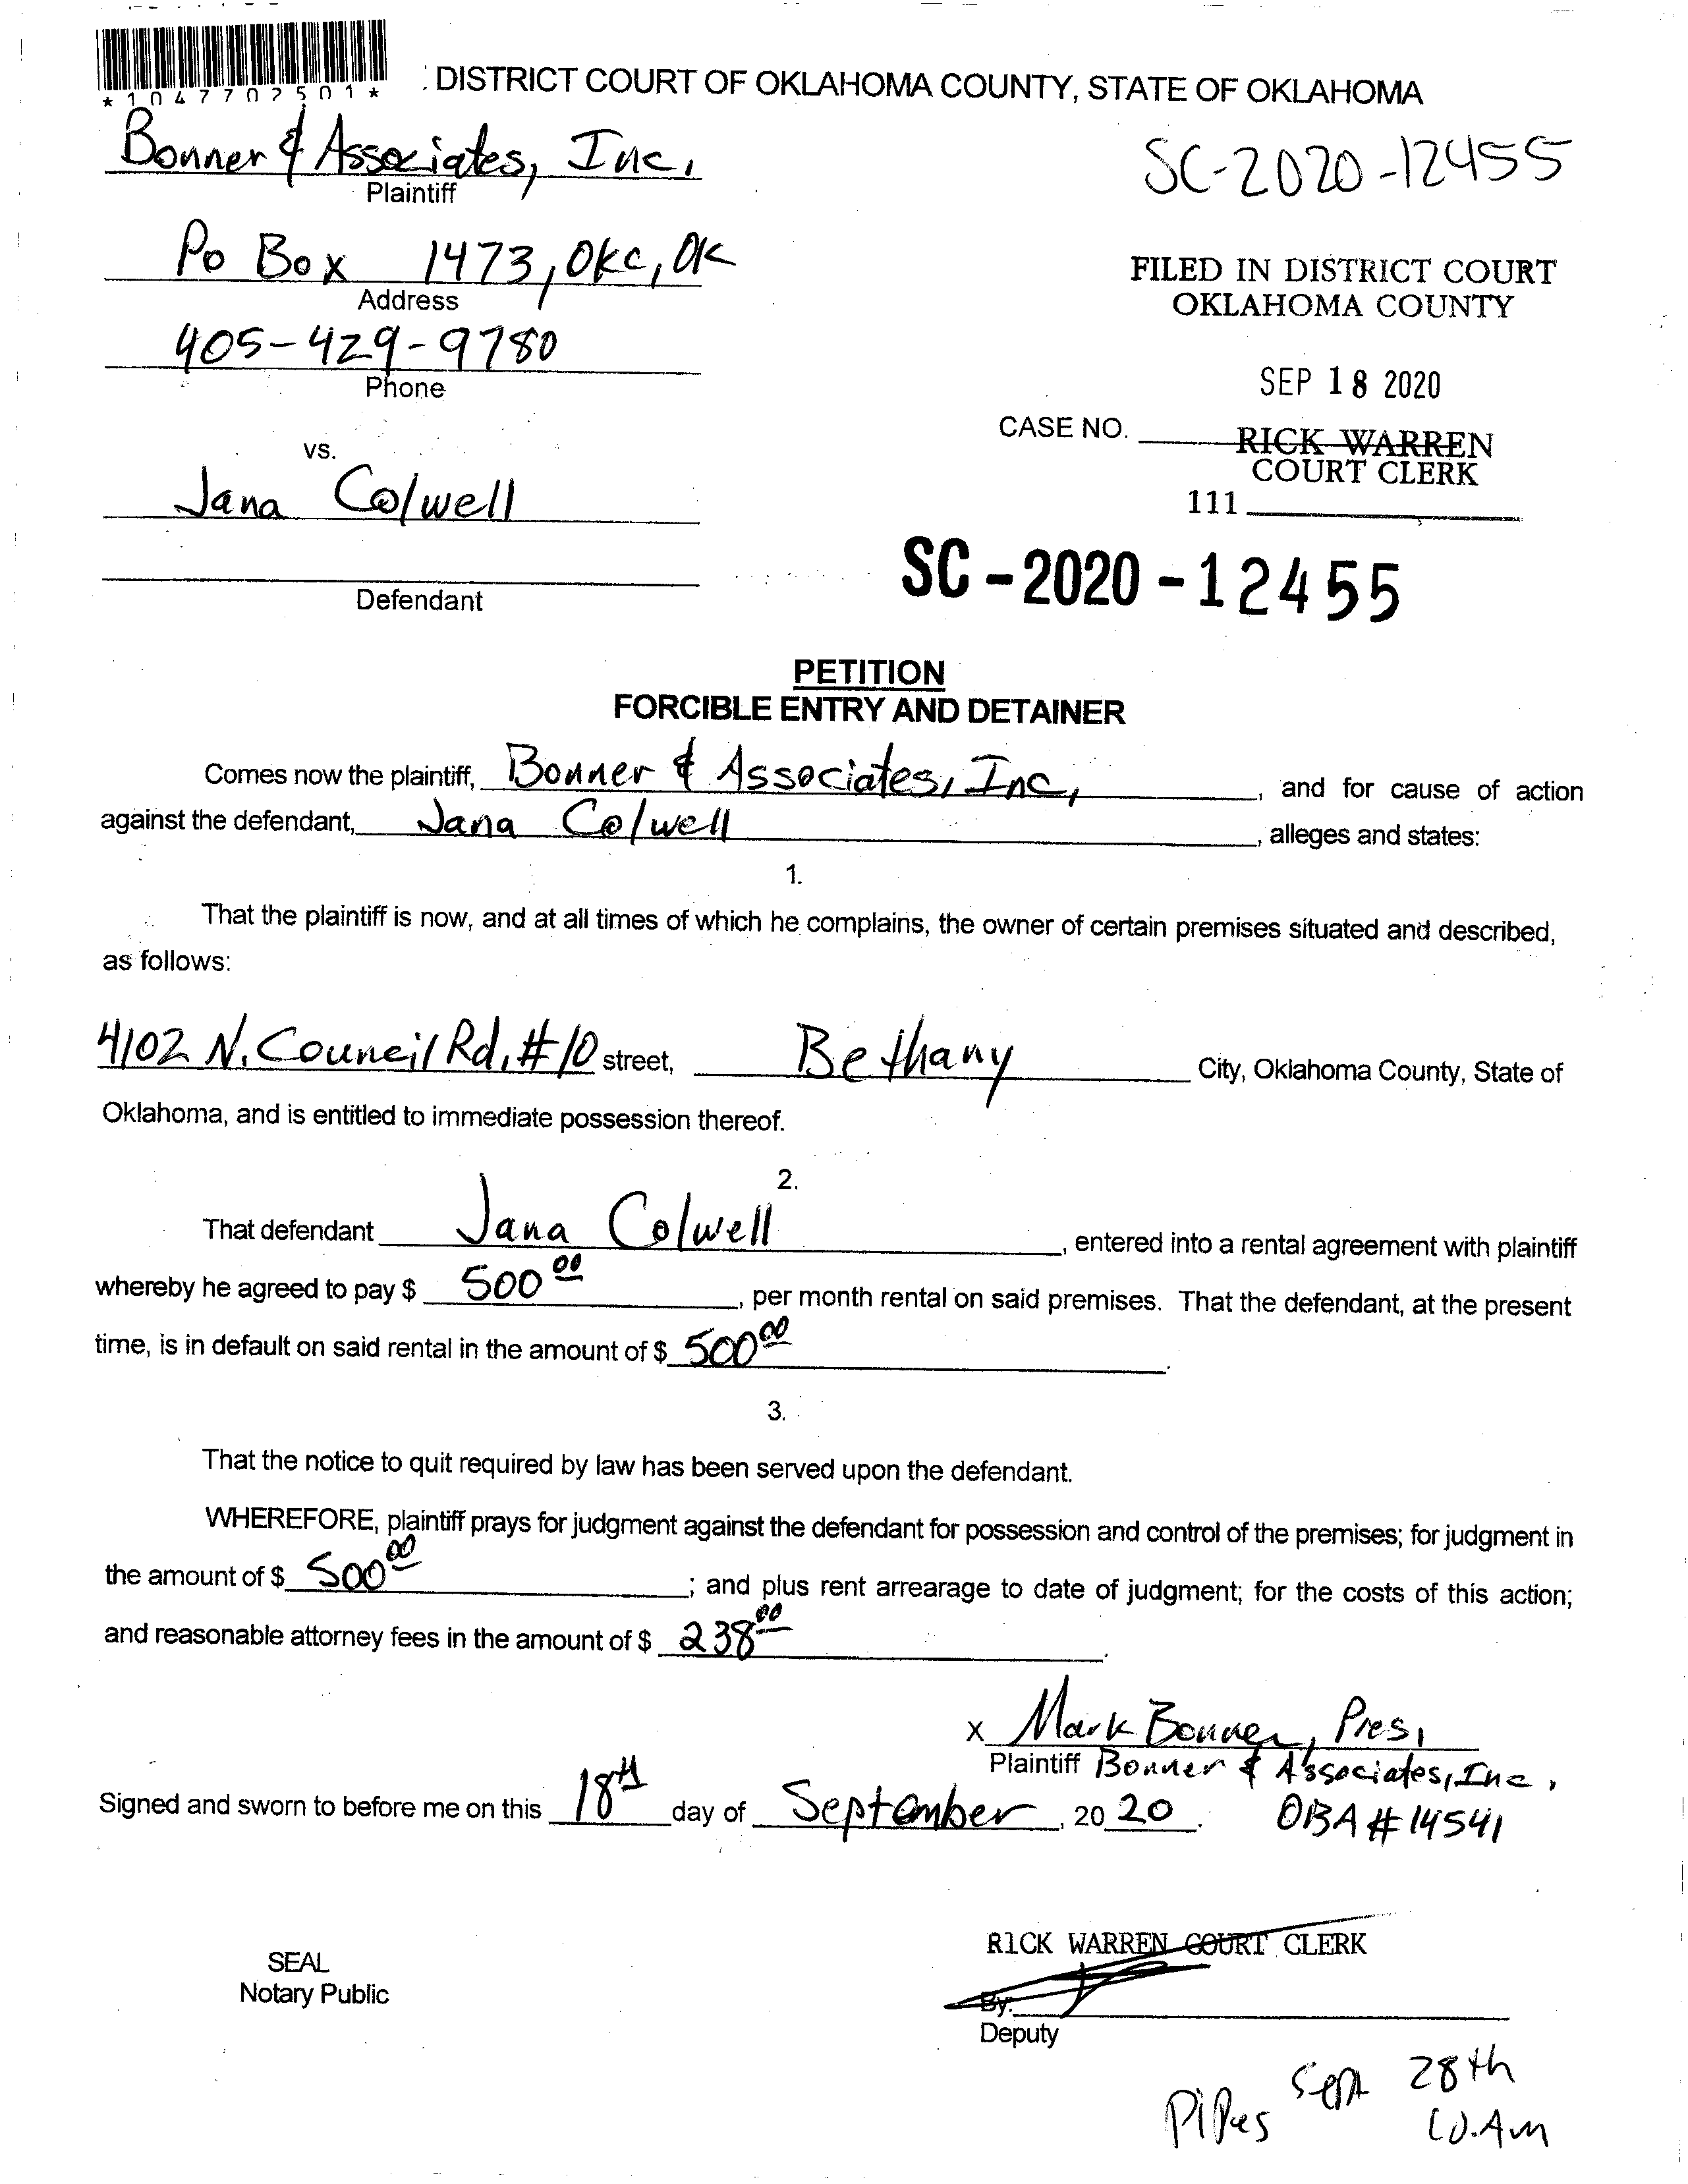 *1047702501*
DISTRICT COURT OF OKLAHOMA COUNTY, STATE OF OKLAHOMA
Bonner & Associates, Inc.
Plaintiff
SC-2020-12455
Po Box 1473, OKC, OK
Address
FILED IN DISTRICT COURT
OKLAHOMA COUNTY
405-429-9780
Phone
SEP 18 2020
CASE NO.
RICK WARREN
COURT CLERK
111
vs.
Jana Colwell
Defendant
SC-2020-12455
PETITION
FORCIBLE ENTRY AND DETAINER
Comes now the plaintiff, Bonner & Associates, Inc., and for cause of action
against the defendant, Jana Colwell, alleges and states:
1.
That the plaintiff is now, and at all times of which he complains, the owner of certain premises situated and described,
as follows:
4102 N. Council Rd, #10 street, Bethany City, Oklahoma County, State of
Oklahoma, and is entitled to immediate possession thereof.
2.
That defendant Jana Colwell, entered into a rental agreement with plaintiff
whereby he agreed to pay $ 500 00, per month rental on said premises. That the defendant, at the present
time, is in default on said rental in the amount of $ 500 00.
3.
That the notice to quit required by law has been served upon the defendant.
WHEREFORE, plaintiff prays for judgment against the defendant for possession and control of the premises; for judgment in
the amount of $ 500 00; and plus rent arrearage to date of judgment; for the costs of this action;
and reasonable attorney fees in the amount of $ 238 00.
X Mark Bonner, Pres.
Plaintiff Bonner & Associates, Inc.
Signed and sworn to before me on this 18th day of September, 2020.
OBA # 14541
RICK WARREN COURT CLERK
SEAL
Notary Public
By:
Deputy
Pipes Sept 28th
10.Am